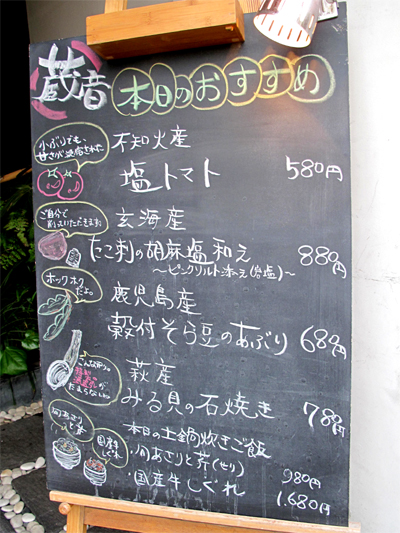 蔵音 本日のおすすめ
小ぶりでも、
甘さが凝縮された
不知火産
塩トマト 580円
ご自分で
削っていただきます
玄海産
たこ刺の胡麻塩和え 880円
〜ピンクソルト添え(岩塩)〜
ホックホク
だよ。
鹿児島産
殻付そら豆のあぶり 680円
こんな香り。
たまらない…
萩産
みる貝の石焼き 780円
本日の土鍋炊きご飯
・あさりと芹(せり) 980円
国産牛
しぐれ
・国産牛しぐれ 1,680円